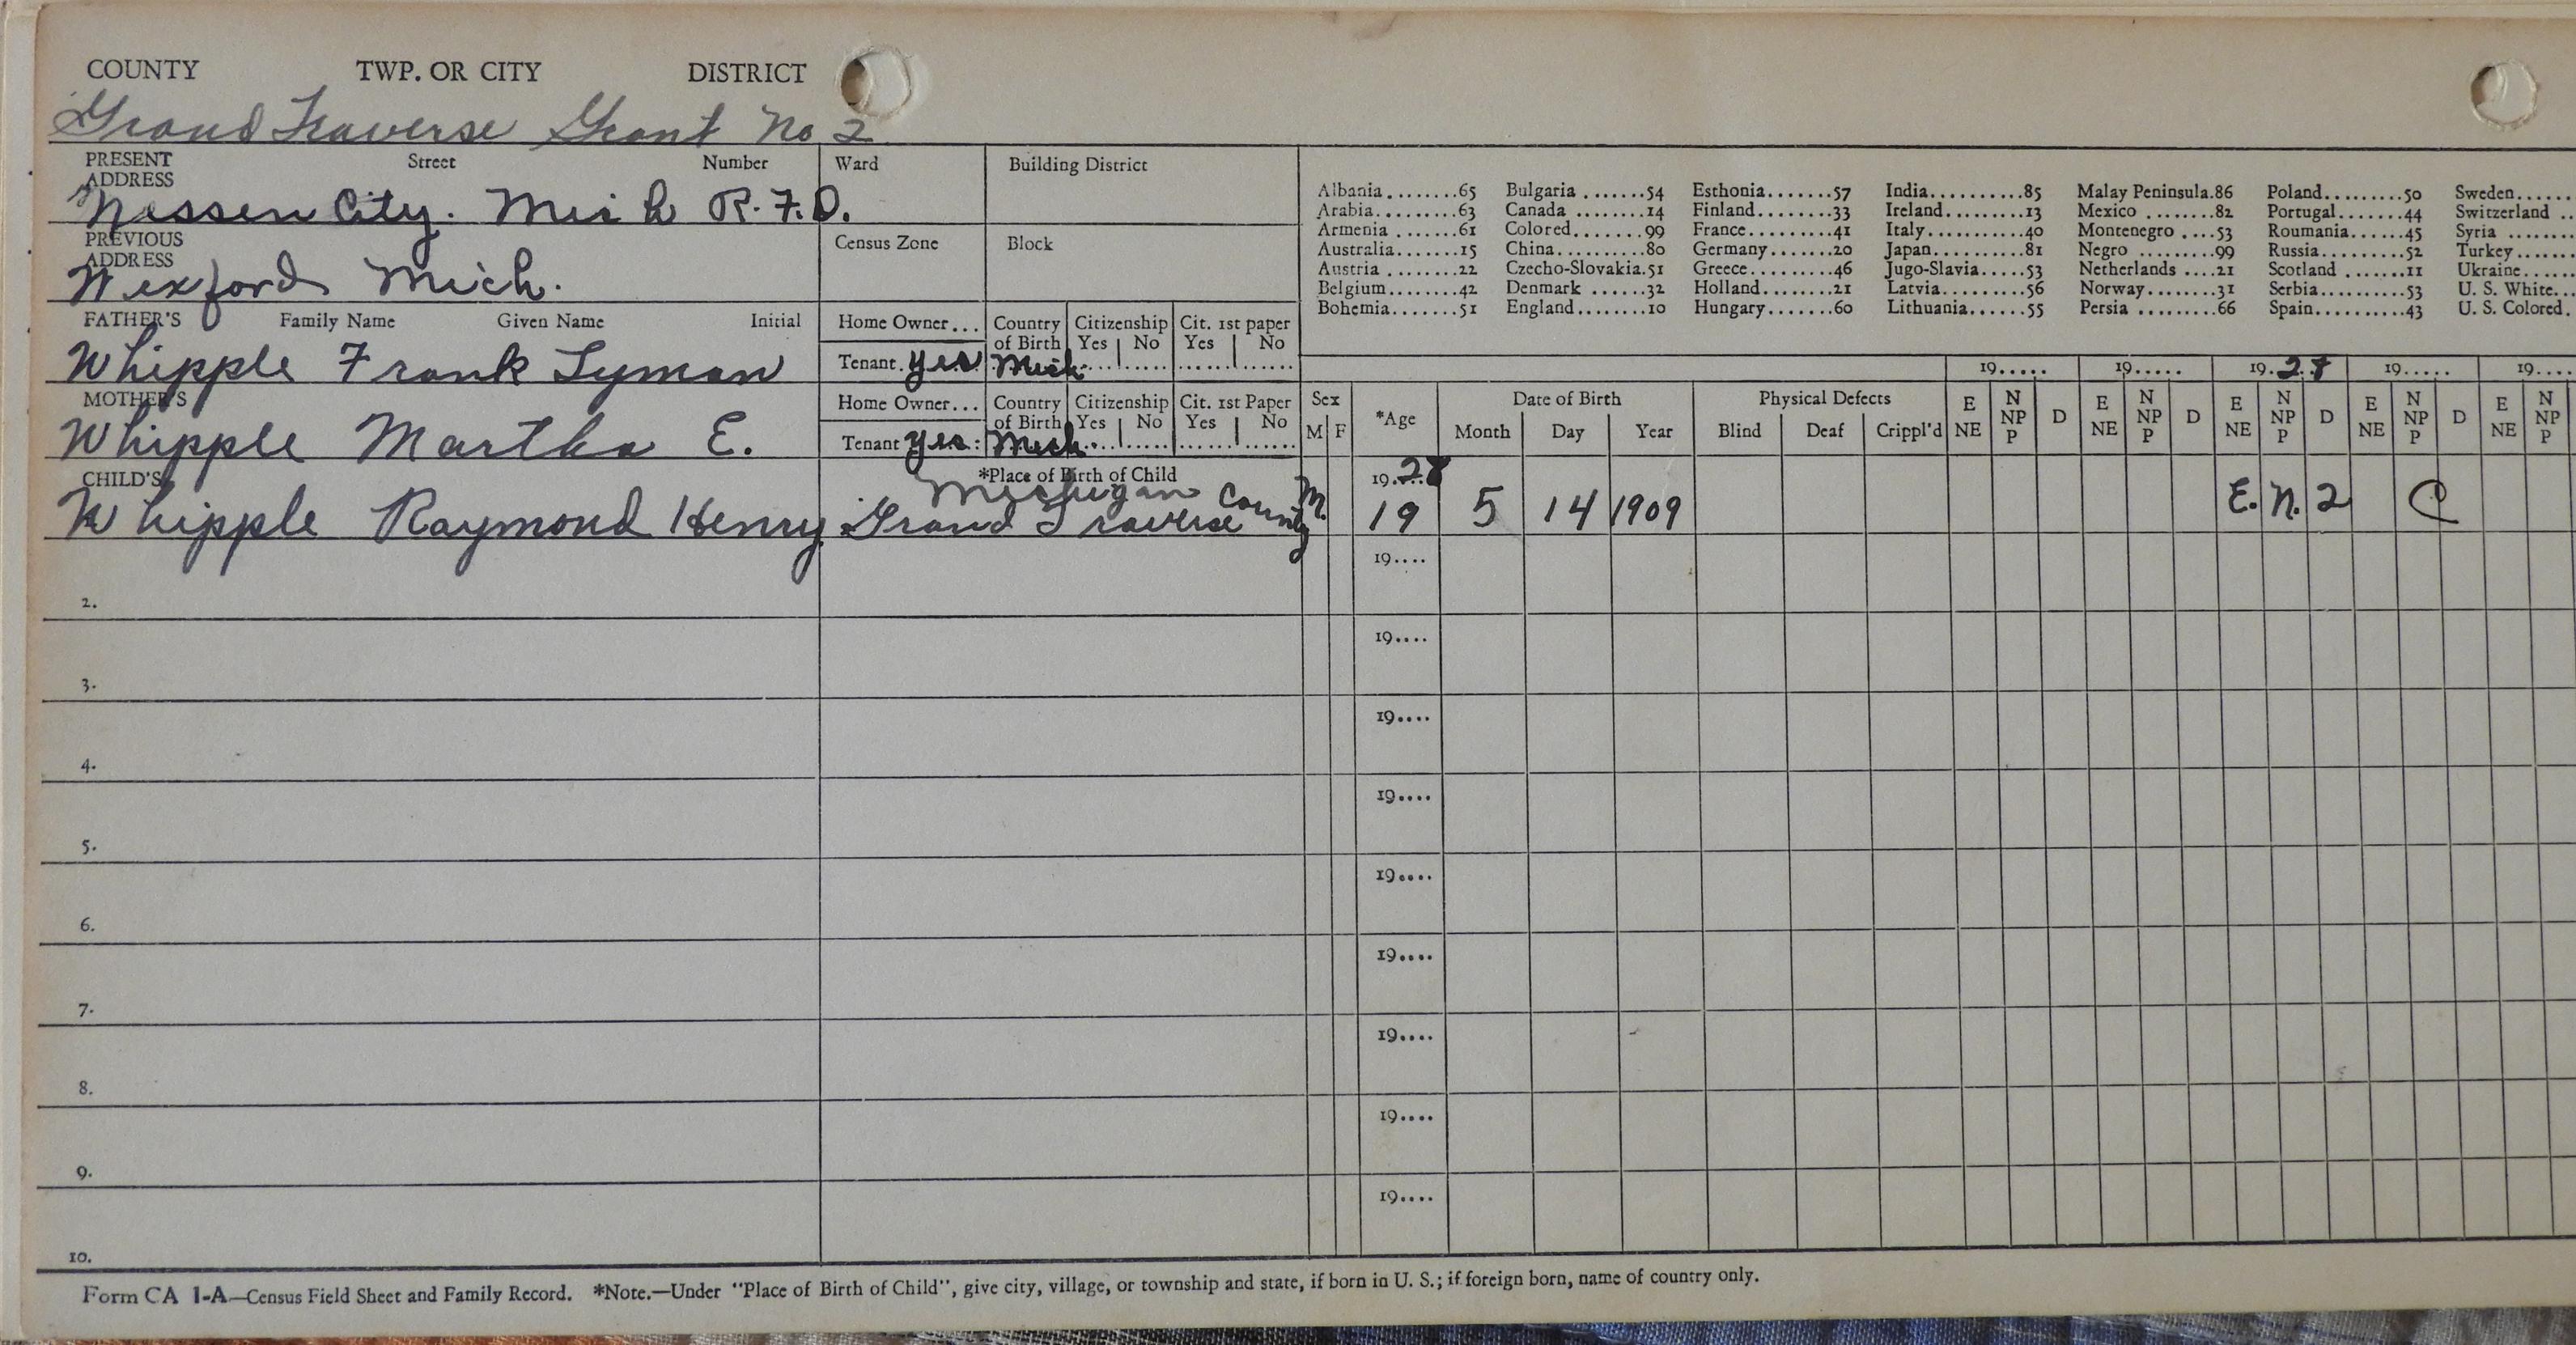 COUNTY TWP. OR CITY DISTRICT
Grand Traverse Grant No 2
PRESENT ADDRESS Street Number Ward Building District
Nessen City. Mich R.F.D.
PREVIOUS ADDRESS Census Zone Block
Wexford Mich.
Albania........65 Bulgaria ......54 Esthonia.......57 India..........85 Malay Peninsula.86 Poland.........50 Sweden......
Arabia.........63 Canada ........14 Finland........33 Ireland........13 Mexico ........82 Portugal.......44 Switzerland ..
Armenia .......61 Colored.......99 France.........41 Italy..........40 Montenegro ....53 Roumania......45 Syria ........
Australia......15 China..........80 Germany.......20 Japan..........81 Negro .........99 Russia.........52 Turkey.......
Austria .......22 Czecho-Slovakia.51 Greece.........46 Jugo-Slavia.....53 Netherlands ....21 Scotland .......11 Ukraine......
Belgium.......42 Denmark ......32 Holland........21 Latvia..........56 Norway........31 Serbia..........53 U. S. White...
Bohemia.......51 England........10 Hungary.......60 Lithuania......55 Persia .........66 Spain..........43 U. S. Colored.
FATHER'S Family Name Given Name Initial Home Owner... Country of Birth Citizenship Yes No Cit. 1st paper Yes No
Whipple Frank Lyman Tenant. yes Mich.
19..... 19..... 19.28 19..... 19....
MOTHER'S Home Owner... Country of Birth Citizenship Yes No Cit. 1st Paper Yes No
Whipple Martha E. Tenant yes. Mich.
Sex M F *Age Date of Birth Month Day Year Physical Defects Blind Deaf Crippl'd E NE N NP P D E NE N NP P D E NE N NP P D E NE N NP P D E NE N NP P
CHILD'S *Place of Birth of Child 19.28
Michigan
Whipple Raymond Henry Grand Traverse County M. 19 5 14 1909 E. N. 2 C
19....
2.
19....
3.
19....
4.
19....
5.
19....
6.
19....
7.
19....
8.
19....
9.
19....
10.
Form CA 1-A—Census Field Sheet and Family Record. *Note.—Under "Place of Birth of Child", give city, village, or township and state, if born in U. S.; if foreign born, name of country only.